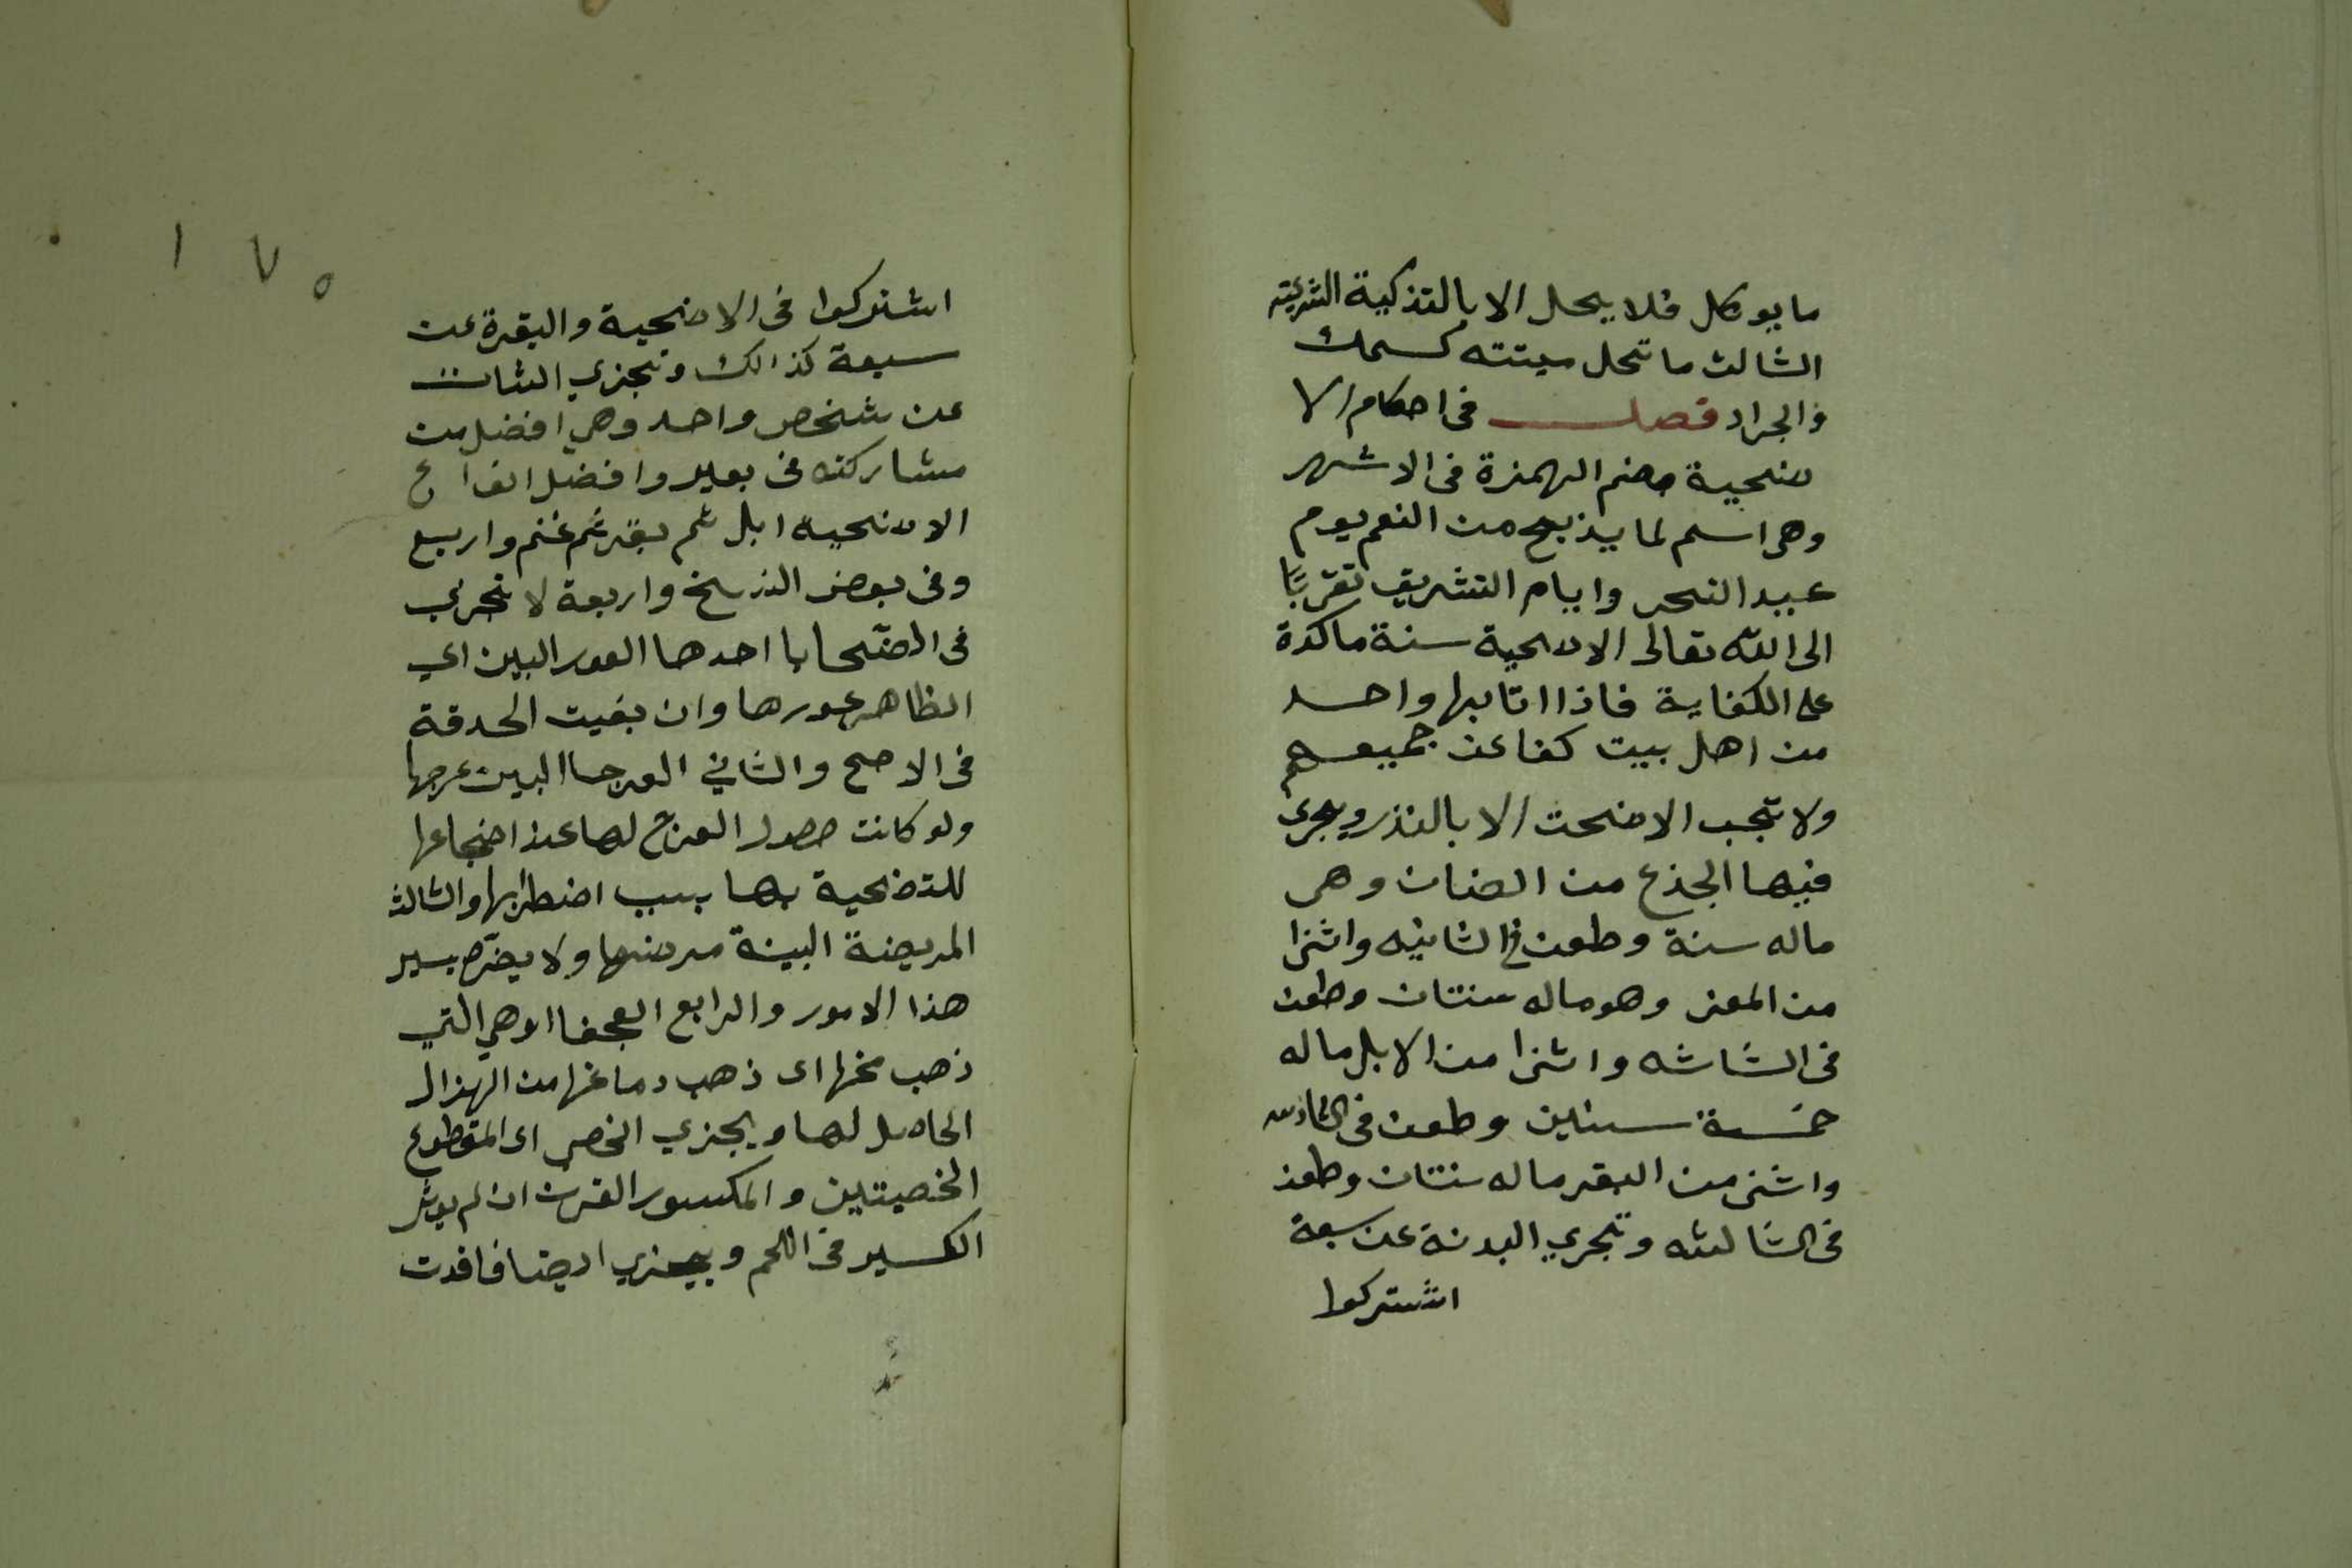 ما يوكل فلا يحل الا بالتذكية الشرعية
الثالث ما تحل ميتته كسمك
والجراد فصل في احكام الا
ضحية بضم الهمزة في الاشهر
وهي اسم لما يذبح من النعم يوم
عيد النحر وايام التشريق تقربًا
الى الله تعالى الاضحية سنة ماكدة
على الكفاية فاذا اتا بها واحد
من اهل بيت كفا عن جميعهم
ولا تجب الاضحت الا بالنذر ويجرى
فيها الجذع من الضان وهى
ماله سنة وطعن في الثانيه واثنا
من المعز وهو ماله سنتان وطعن
في الثاشه واثنا من الابل ماله
خمسة سنين وطعن في السادس
واثنى من البقر ماله سنتان وطعن
في الثالثه وتجري البدنة عن سبعة
اشتركوا
١٧٥
اشتركوا في الاضحية والبقرة عن
سبعة كذالك وتجزي الشات
عن شخص واحد وهي افضل من
مشاركته في بعير وافضل انواع
الاضحية ابل ثم بقر ثم غنم واربع
وفي بعض النسخ واربعة لا تجزي
في الضحايا احدها العور البين اي
الظاهر عورها وان بقيت الحدقة
في الاصح والثاني العرجا البين عرجها
ولو كانت حصول العرج لها عند اضجاعها
للتضحية بها بسبب اضطرابها والثالث
المريضة البينة مرضها ولا يضر يسير
هذا الامور والرابع العجفا اوهي التي
ذهب مخها اى ذهب دماغها من الهزال
الحاصل لها ويجزي الخصي اى المقطوع
الخصيتين والمكسور القرن ان لم يوثر
الكسير في اللحم ويجزي ايضا فاقدت